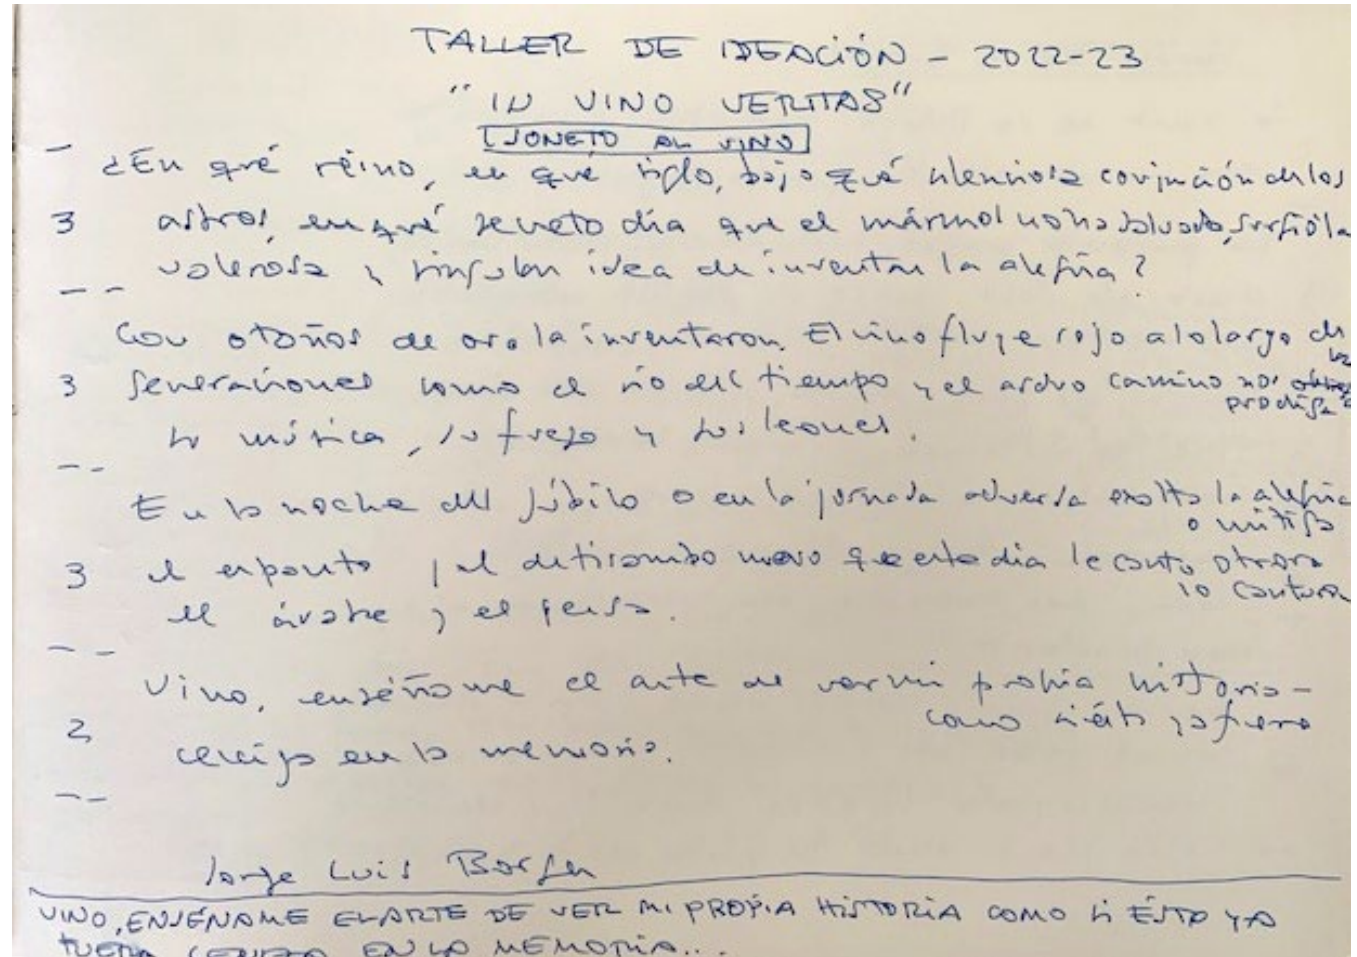 TALLER DE IDEACIÓN - 2022-23
"IN VINO VERITAS"
SONETO AL VINO
¿En qué reino, en qué siglo, bajo qué silenciosa conjunción de los
3 astros, en qué secreto día que el mármol no ha salvado, surgió la
valerosa y singular idea de inventar la alegría?
Con otoños de oro la inventaron. El vino fluye rojo a lo largo de
las
3 generaciones como el río del tiempo y en el arduo camino nos
prodiga
su música, su fuego y sus leones.
En la noche del júbilo o en la jornada adversa exalta la alegría
o mitiga
3 el espanto y el ditirambo nuevo que este día le canto otrora
lo cantaron
el árabe y el persa.
Vino, enséñame el arte de ver mi propia historia
como si ésta ya fuera
2 ceniza en la memoria.
Jorge Luis Borges
VINO, ENSÉÑAME EL ARTE DE VER MI PROPIA HISTORIA COMO SI ÉSTA YA
FUERA CENIZA EN LA MEMORIA...